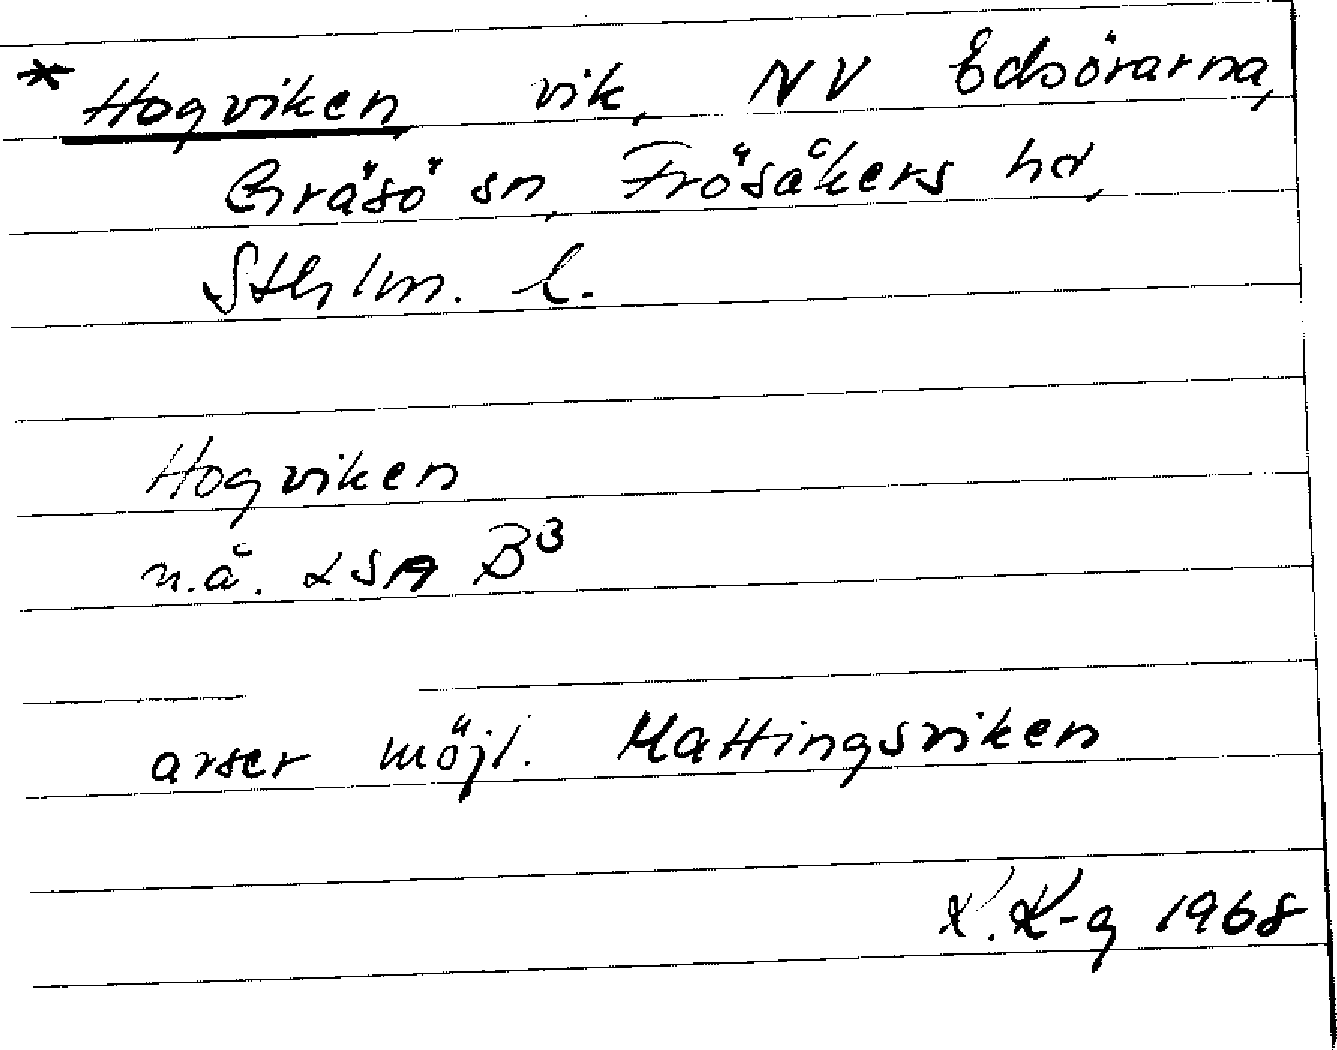 * Hogviken vik, NV Edsörarna,
Gräsö sn, Frösåkers hd,
Sthlm. l.
Hogviken
n.å. LSA B³
avser möjl. Mattingsviken
K. K-g 1968